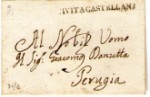 CIVITACASTELLANA
Al Nobil Uomo
Il Sig: Giacomo Danzetta
Perugia